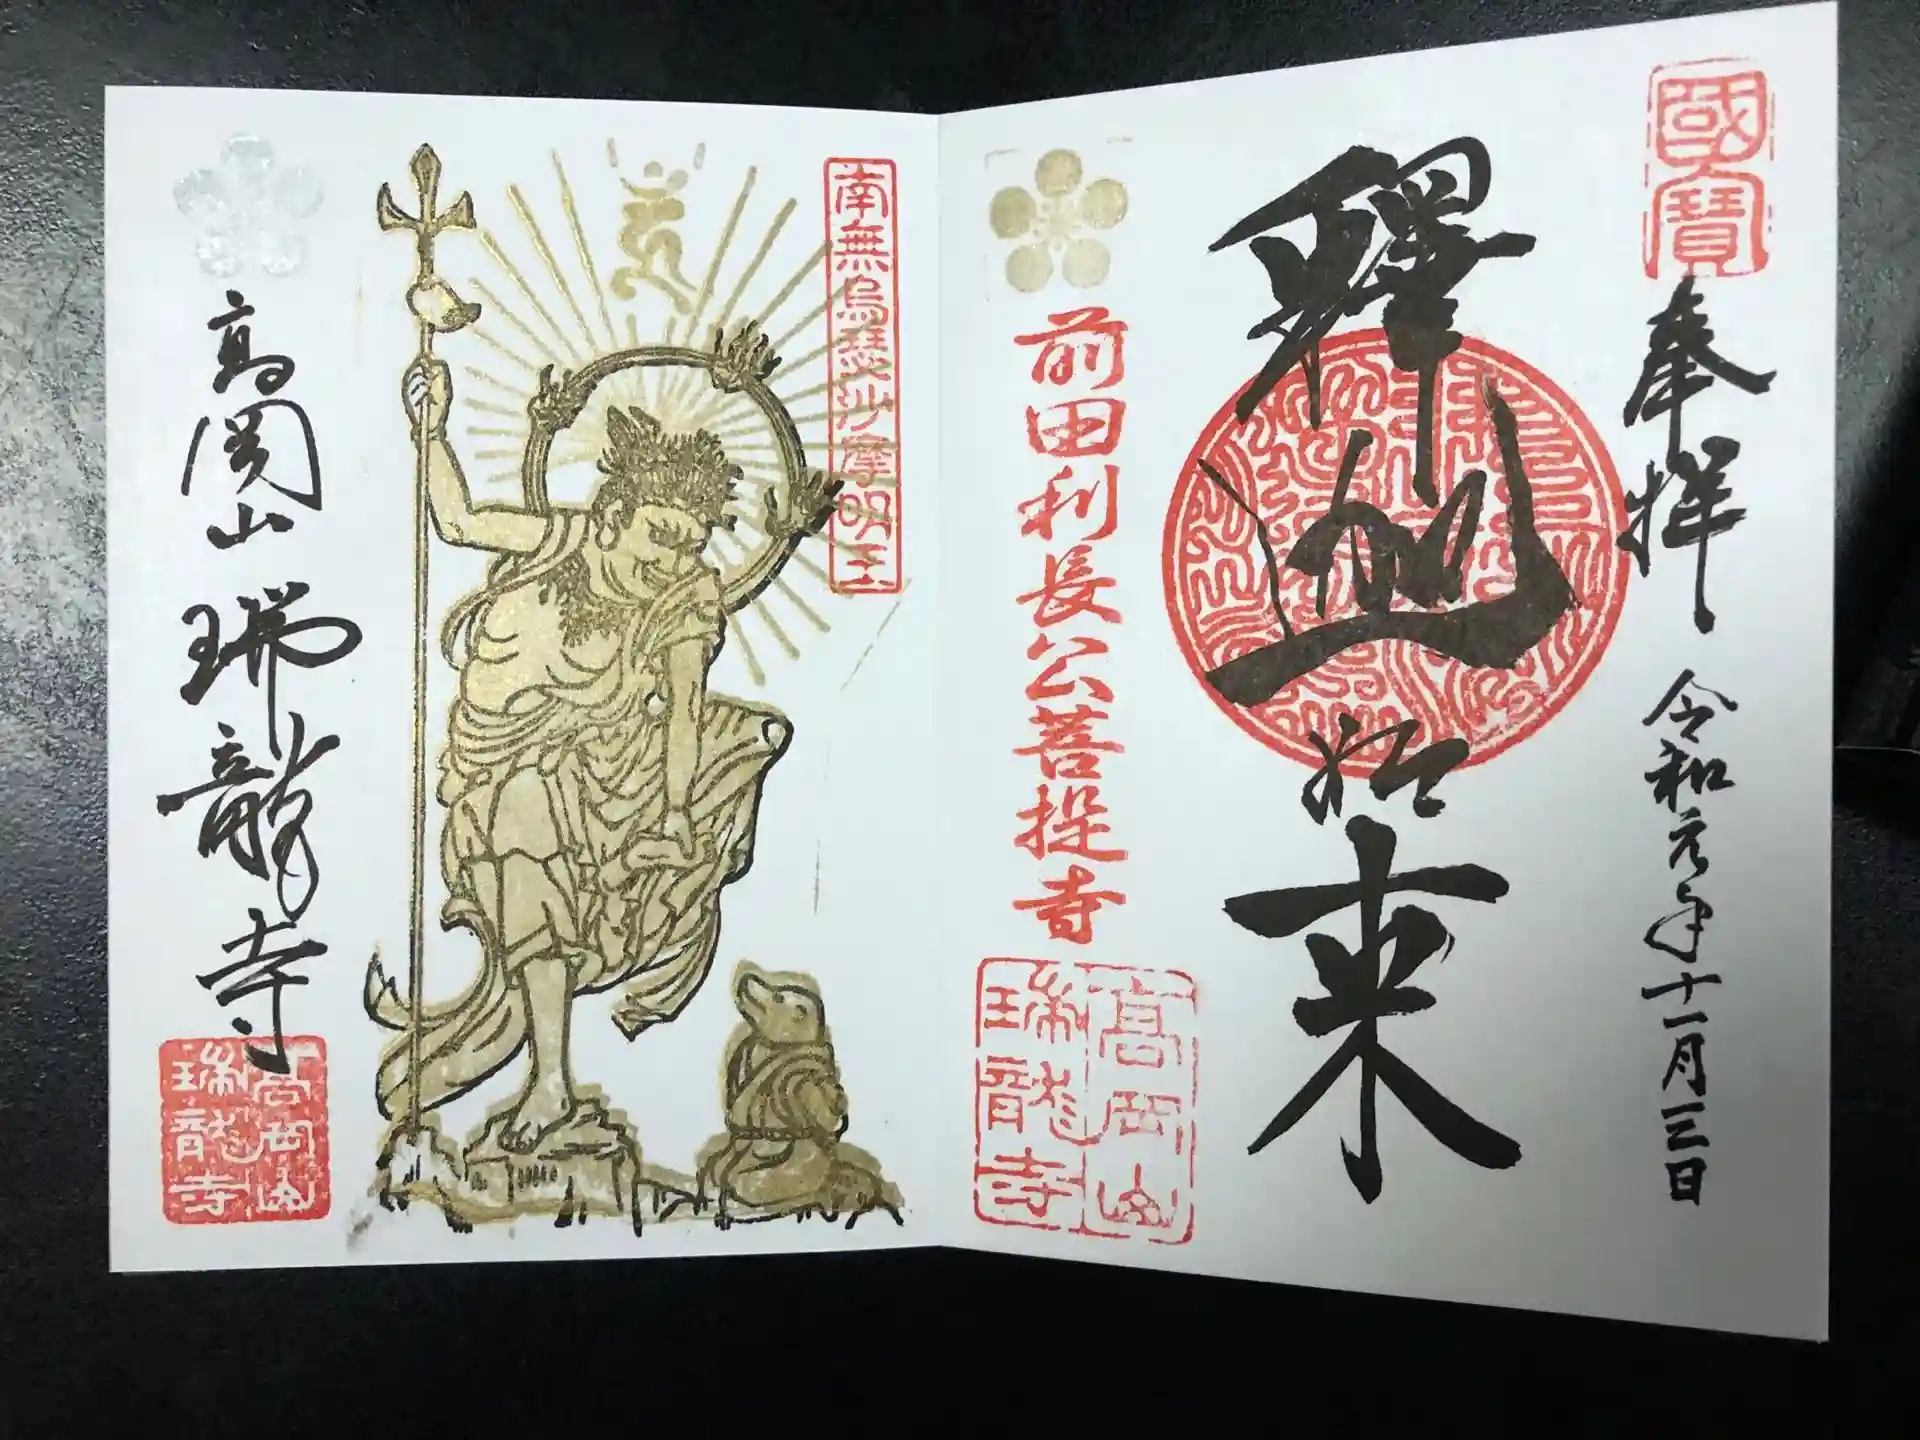 國寶
奉拝 令和元年十一月三日
釋迦如来
前田利長公菩提寺
高岡山
瑞龍寺
南無烏瑟沙摩明王
高岡山瑞龍寺
高岡山
瑞龍寺